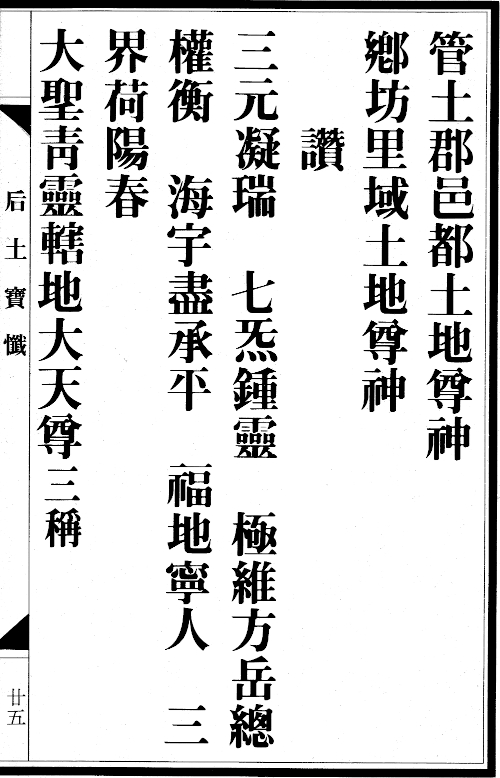 管土郡邑都土地尊神
鄉坊里域土地尊神
讚
三元凝瑞　七炁鍾靈　極維方岳總
權衡　海宇盡承平　福地寧人　三
界荷陽春
大聖青靈轄地大天尊三稱
后土寶懺
廿五